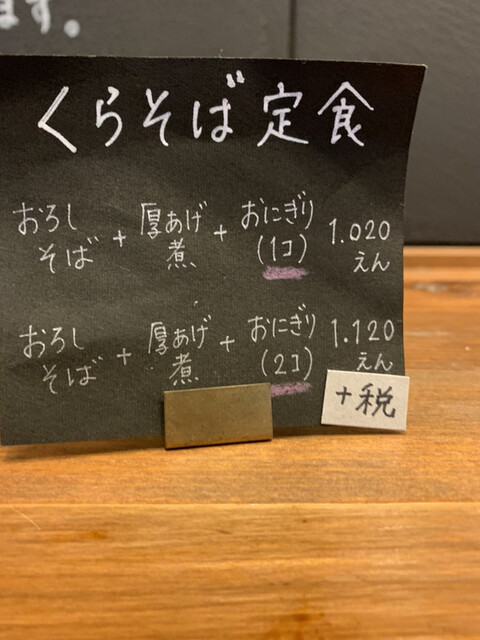 ます。
くらそば定食
おろしそば + 厚あげ煮 + おにぎり(1コ) 1.020えん
おろしそば + 厚あげ煮 + おにぎり(2コ) 1.120えん
+税